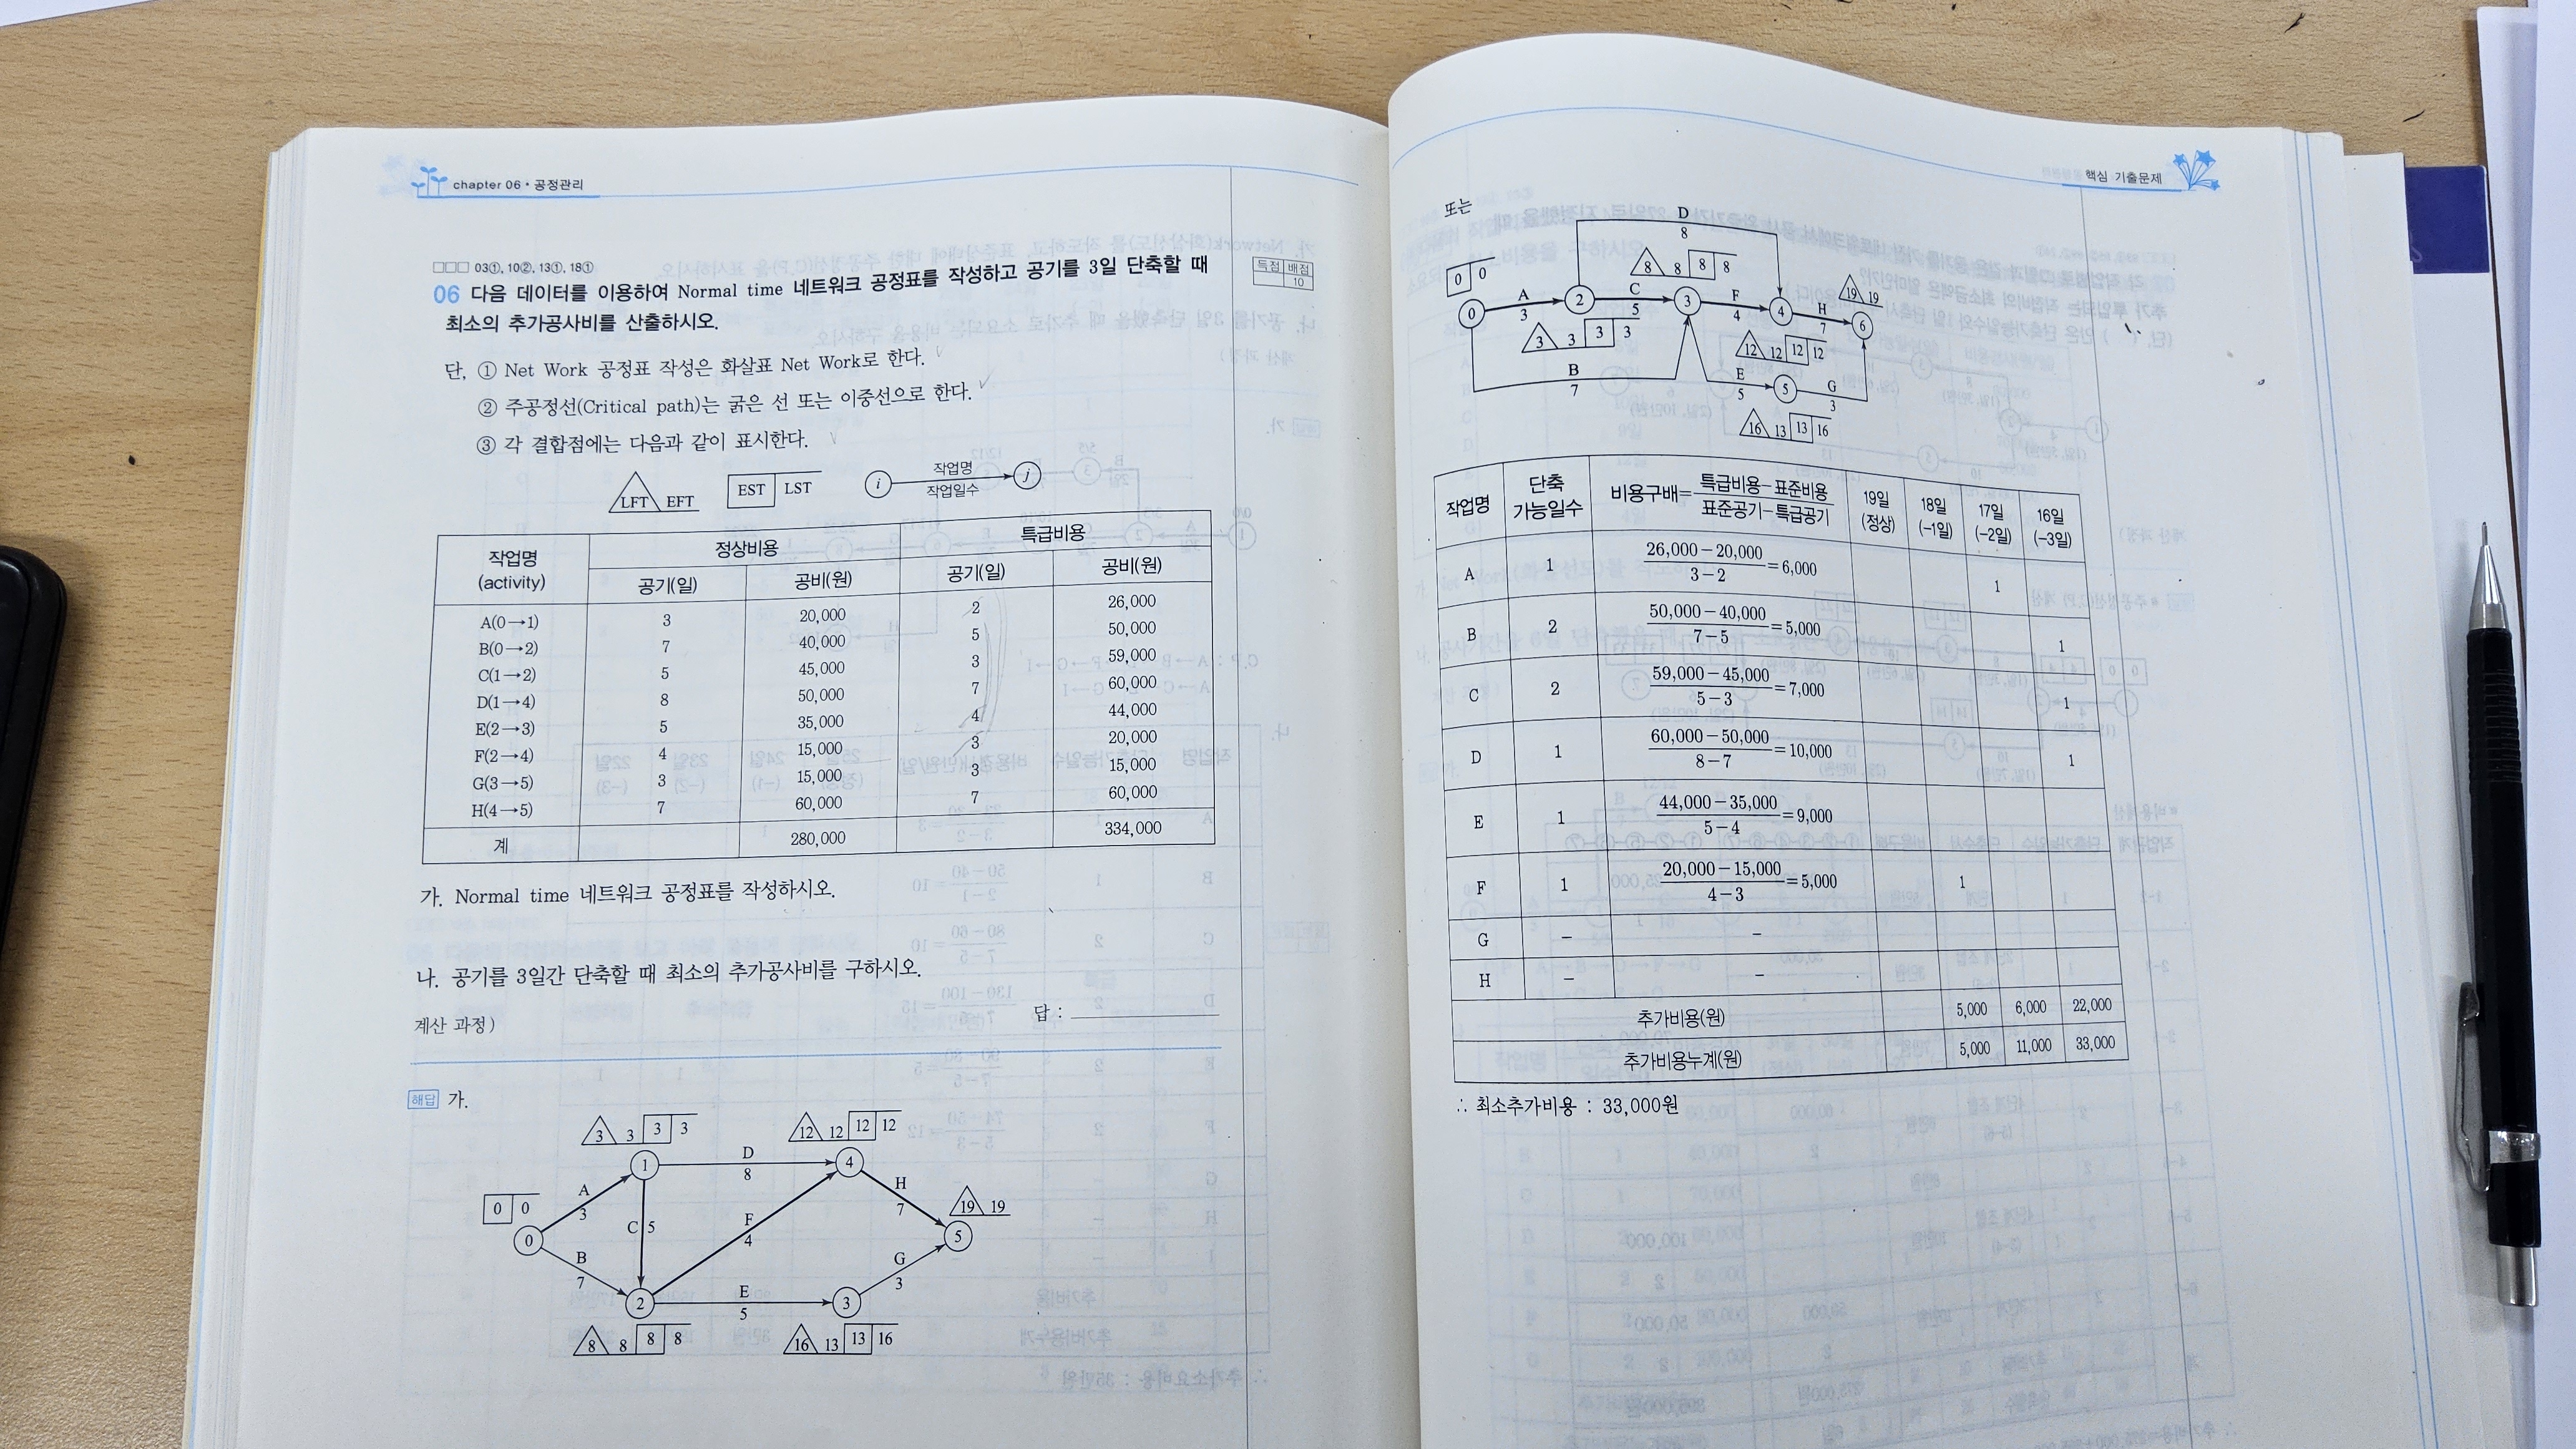 chapter 06 • 공정관리
□□□ 03①, 10②, 13①, 18①
06 다음 데이터를 이용하여 Normal time 네트워크 공정표를 작성하고 공기를 3일 단축할 때
최소의 추가공사비를 산출하시오.
득점 배점
10
단, ① Net Work 공정표 작성은 화살표 Net Work로 한다.
② 주공정선(Critical path)는 굵은 선 또는 이중선으로 한다.
③ 각 결합점에는 다음과 같이 표시한다.
LFT EFT EST LST i 작업명 작업일수 j
작업명 (activity) 정상비용 특급비용
공기(일) 공비(원) 공기(일) 공비(원)
A(0→1) 3 20,000 2 26,000
B(0→2) 7 40,000 5 50,000
C(1→2) 5 45,000 3 59,000
D(1→4) 8 50,000 7 60,000
E(2→3) 5 35,000 4 44,000
F(2→4) 4 15,000 3 20,000
G(3→5) 3 15,000 3 15,000
H(4→5) 7 60,000 7 60,000
계 280,000 334,000
가. Normal time 네트워크 공정표를 작성하시오.
나. 공기를 3일간 단축할 때 최소의 추가공사비를 구하시오.
계산 과정) 답 :
해답 가.
3 3 3 3 12 12 12 12
1 D 8 4
0 0 A 3 H 7 19 19
0 C 5 F 4 5
B 7 G 3
2 E 5 3
8 8 8 8 16 13 13 16
핵심 기출문제
또는
D
8
0 0 8 8 8 8 19 19
0 A 3 2 C 5 3 F 4 4 H 7 6
3 3 3 3 12 12 12 12
B 7 E 5 5 G 3
16 13 13 16
작업명 단축 가능일수 비용구배= 특급비용−표준비용 / 표준공기−특급공기 19일 (정상) 18일 (−1일) 17일 (−2일) 16일 (−3일)
A 1 26,000−20,000 / 3−2 =6,000 1
B 2 50,000−40,000 / 7−5 =5,000 1
C 2 59,000−45,000 / 5−3 =7,000 1
D 1 60,000−50,000 / 8−7 =10,000 1
E 1 44,000−35,000 / 5−4 =9,000
F 1 20,000−15,000 / 4−3 =5,000 1
G − −
H − −
추가비용(원) 5,000 6,000 22,000
추가비용누계(원) 5,000 11,000 33,000
∴ 최소추가비용 : 33,000원